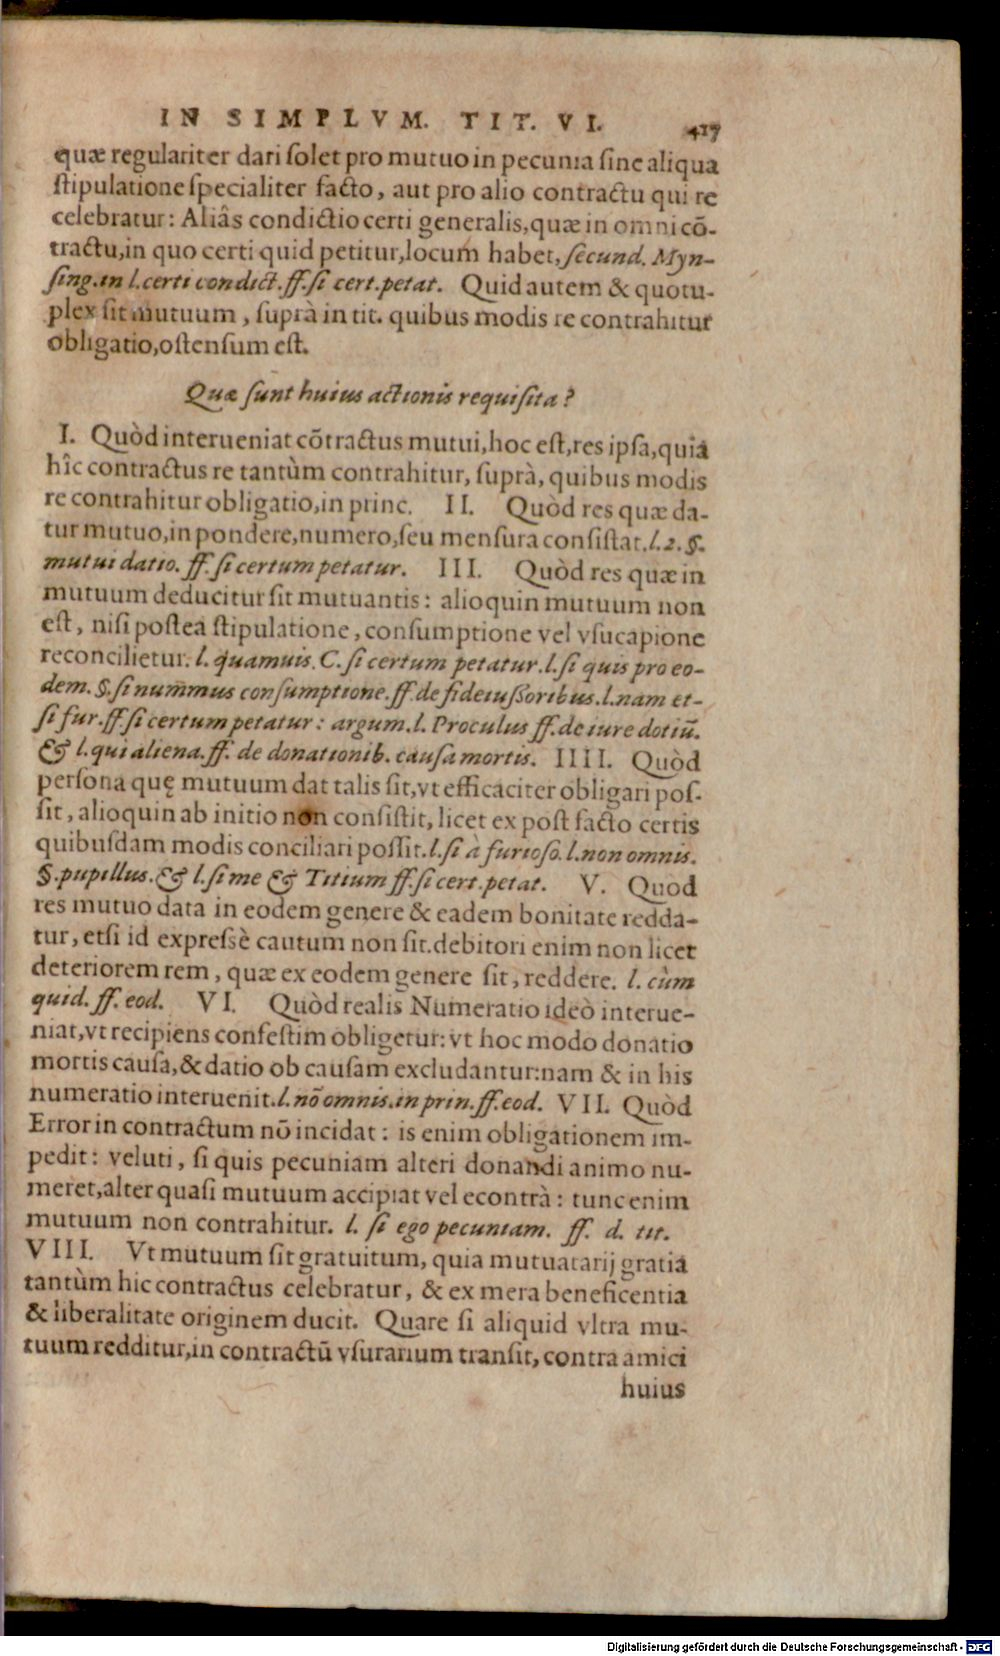 IN SIMPLVM. TIT. VI. 417
quæ regulariter dari ſolet pro mutuo in pecunia ſine aliqua
ſtipulatione ſpecialiter facto, aut pro alio contractu qui re
celebratur: Aliâs condictio certi generalis, quæ in omni cō-
tractu, in quo certi quid petitur, locum habet, ſecund. Myn-
ſing. in l. certi condict. ff. ſi cert. petat. Quid autem & quotu-
plex ſit mutuum, ſuprà in tit. quibus modis re contrahitur
obligatio, oſtenſum eſt.
Quæ ſunt huius actionis requiſita?
I. Quòd interueniat cōtractus mutui, hoc eſt, res ipſa, quia
hîc contractus re tantùm contrahitur, ſuprà, quibus modis
re contrahitur obligatio, in princ. II. Quòd res quæ da-
tur mutuo, in pondere, numero, ſeu menſura conſiſtat. l. 2. §.
mutui datio. ff. ſi certum petatur. III. Quòd res quæ in
mutuum deducitur ſit mutuantis: alioquin mutuum non
eſt, niſi poſtea ſtipulatione, conſumptione vel vſucapione
reconcilietur. l. quamuis. C. ſi certum petatur. l. ſi quis pro eo-
dem. §. ſi nummus conſumptione. ff. de fideiuſſoribus. l. nam et-
ſi fur. ff. ſi certum petatur: argum. l. Proculus ff. de iure dotiū.
& l. qui aliena. ff. de donationib. cauſa mortis. IIII. Quòd
perſona quę mutuum dat talis ſit, vt efficaciter obligari poſ-
ſit, alioquin ab initio non conſiſtit, licet ex poſt facto certis
quibuſdam modis conciliari poſſit. l. ſi à furioſo. l. non omnis.
§. pupillus. & l. ſi me & Titium ff. ſi cert. petat. V. Quòd
res mutuo data in eodem genere & eadem bonitate redda-
tur, etſi id expreſsè cautum non ſit. debitori enim non licet
deteriorem rem, quæ ex eodem genere ſit, reddere. l. cùm
quid. ff. eod. VI. Quòd realis Numeratio ideò interue-
niat, vt recipiens confeſtim obligetur: vt hoc modo donatio
mortis cauſa, & datio ob cauſam excludantur: nam & in his
numeratio interuenit. l. nō omnis. in prin. ff. eod. VII. Quòd
Error in contractum nō incidat: is enim obligationem im-
pedit: veluti, ſi quis pecuniam alteri donandi animo nu-
meret, alter quaſi mutuum accipiat vel econtrà: tunc enim
mutuum non contrahitur. l. ſi ego pecuniam. ff. d. tit.
VIII. Vt mutuum ſit gratuitum, quia mutuatarij gratia
tantùm hic contractus celebratur, & ex mera beneficentia
& liberalitate originem ducit. Quare ſi aliquid vltra mu-
tuum redditur, in contractū vſurarium tranſit, contra amici
huius
Digitalisierung gefördert durch die Deutsche Forschungsgemeinschaft - DFG